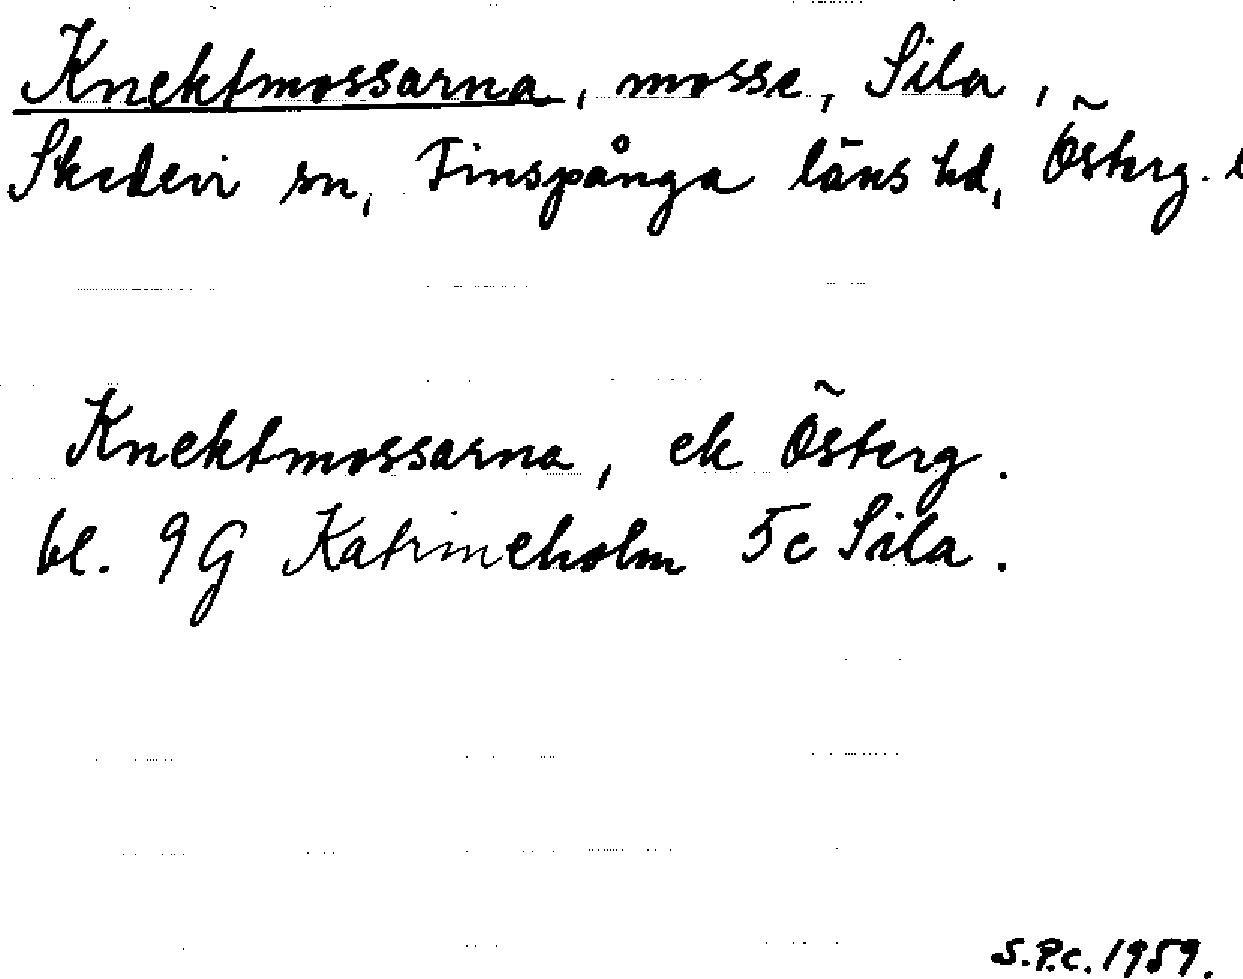 Knektmossarna, mosse, Sila,
Skedevi sn, Finspånga läns hd, Österg. l
Knektmossarna, ek Österg.
bl. 9G Katrineholm 5c Sila.
S.P.c. 1959.